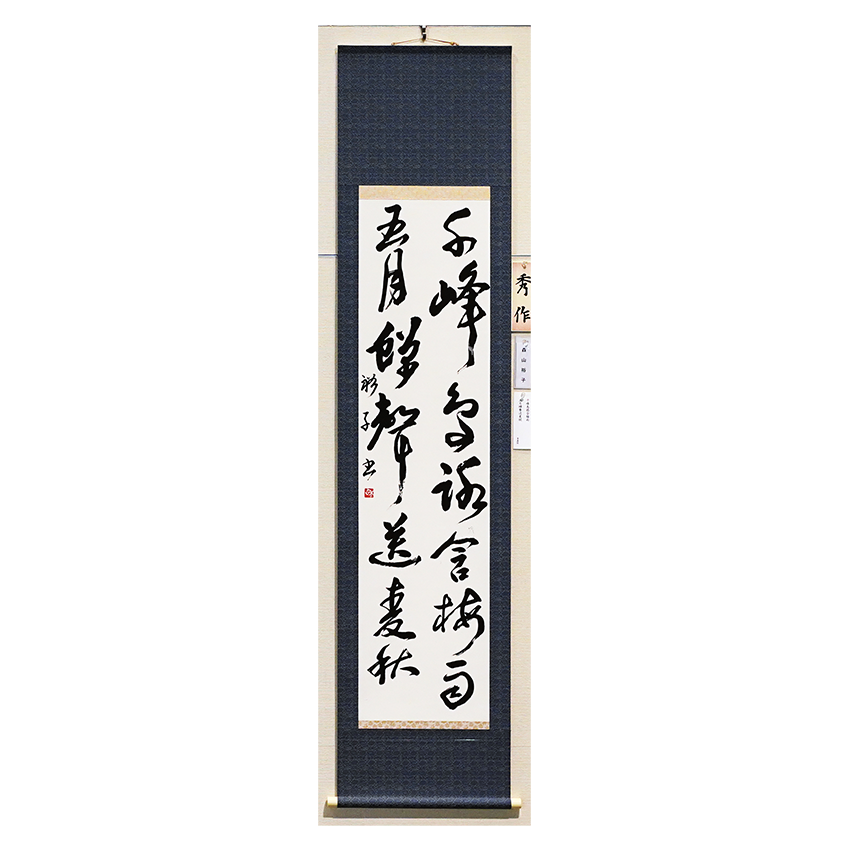 千峰鳥路含梅雨
五月蟬聲送麦秋
彩子书
秀作
森山彩子